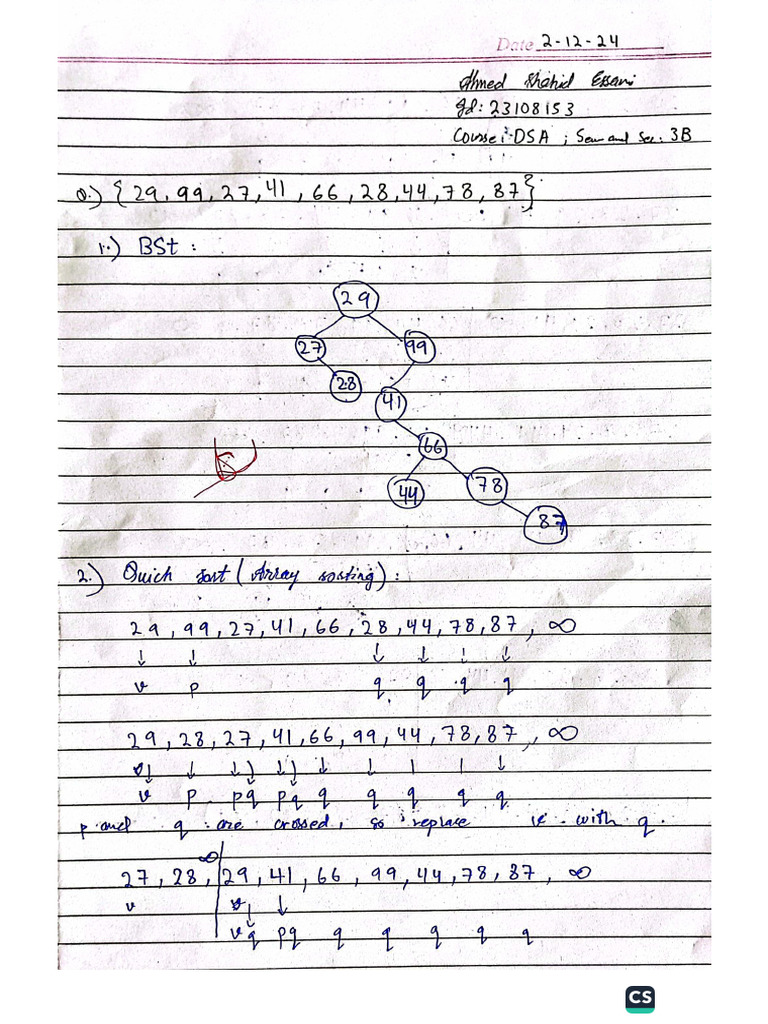 Date 2-12-24
Ahmed Shahid Essani
Id: 23108153
Course: DSA ; Sem and Sec: 3B
Q.) {29, 99, 27, 41, 66, 28, 44, 78, 87}
1.) BSt :
29
27 99
28 41
66
44 78
87
2.) Quick sort (Array sorting) :
29, 99, 27, 41, 66, 28, 44, 78, 87, ∞
↓ ↓ ↓ ↓ ↓ ↓
v p q q q q
29, 28, 27, 41, 66, 99, 44, 78, 87, ∞
v p p q p q q q q q q
p and q are crossed, so replace v with q.
∞
27, 28, 29, 41, 66, 99, 44, 78, 87, ∞
v v ↓
v q p q q q q q q
CS